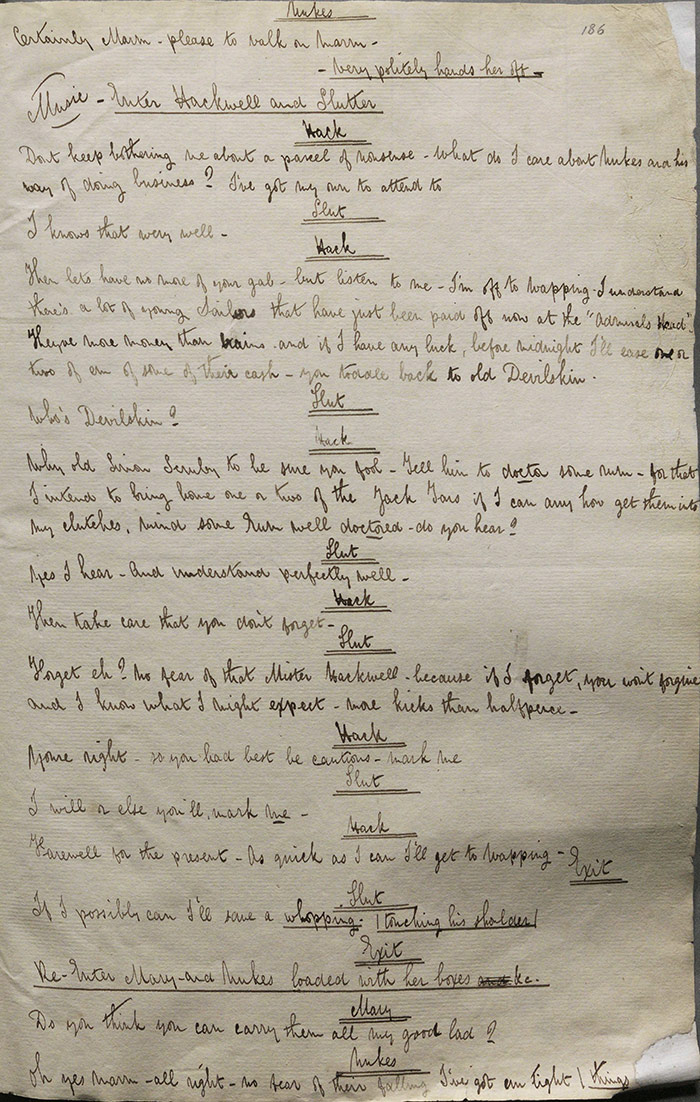 Nukes
186
Certainly Marm - please to valk on Marm -
- Very politely hands her off -
Music - Enter Hackwell and Slutter
Hack
Dont keep bothering me about a parcel of nonsense - what do I care about Nukes and his
way of doing business? I've got my own to attend to
Slut
I knows that wery well -
Hack
Then lets have no more of your gab - but listen to me - I'm off to Wapping - I understand
there's a lot of young Sailors that have just been paid off now at the "Admirals Head"
They've more money than brains - and if I have any luck, before midnight I'll ease one or
two of em of some of their cash - you toddle back to old Devilskin.
Slut
Who's Devilskin?
Hack
Why old Simon Scruby to be sure you fool - Tell him to doctor some rum - for that
I intend to bring home one or two of the Jack Tars if I can any how get them into
my clutches, mind some Rum well doctored - do you hear?
Slut
Yes I hear - And understand perfectly well -
Hack
Then take care that you don't forget -
Slut
Forget eh? No fear of that Mister Hackwell - because if I forget, you won't forgive
and I know what I might expect - more kicks than halfpence -
Hack
You're right - so you had best be cautious - mark me
Slut
I will or else you'll mark me -
Hack
Farewell for the present - As quick as I can I'll get to Wapping -
Exit
Slut
If I possibly can I'll save a whopping - (touching his sholder)
Exit
Re-Enter Mary - and Nukes loaded with her boxes and &c -
Mary
Do you think you can carry them all my good lad?
Nukes
Oh yes marm - all right - no fear of their falling I've got em tight (things